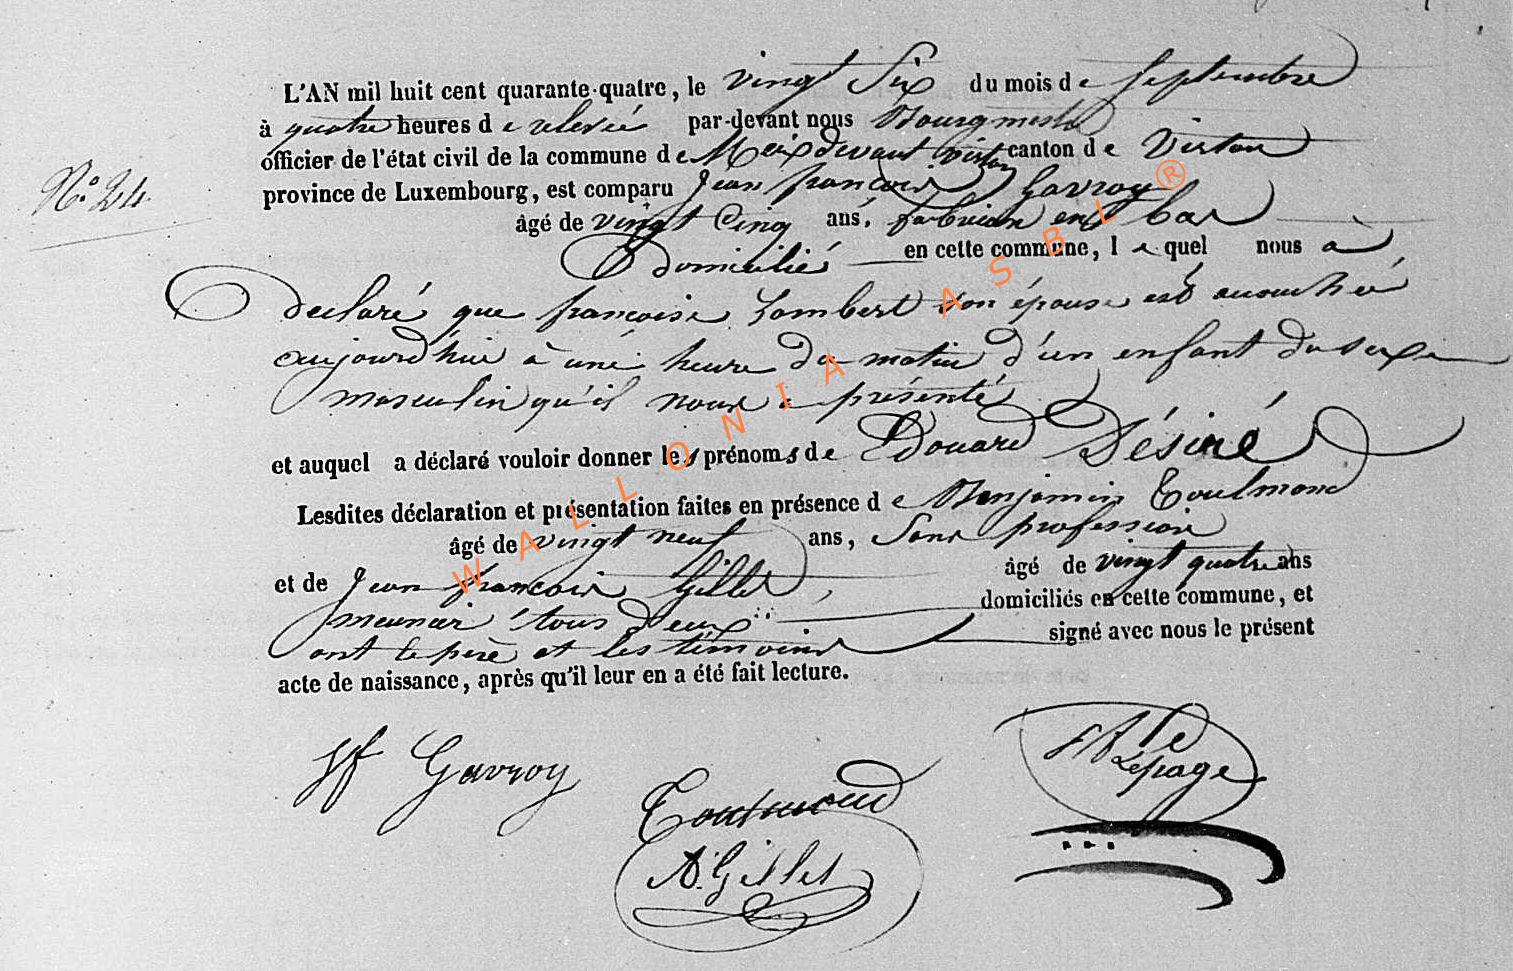 L'AN mil huit cent quarante-quatre, le vingt Six du mois de Septembre
à quatre heures de relevée par-devant nous Bourgmestre
officier de l'état civil de la commune de Meix devant virton canton de Virton
N.° 24.
province de Luxembourg, est comparu Jean françois Gavroy
âgé de vingt Cinq ans, fabrican en bas
Domicilié en cette commune, lequel nous a
Declaré que françoise Lambert son épouse est accouchée
aujourd'hui à une heure du matin d'un enfant du sexe
masculin qu'il nous a présenté
et auquel a déclaré vouloir donner les prénoms de Edouard Désiré
Lesdites déclaration et présentation faites en présence de Benjamin Toulmond
âgé de vingt neuf ans, Sans profession
et de Jean francois Gillet, âgé de vingt quatre ans
meunier tous deux domiciliés en cette commune, et
ont le père et les témoins signé avec nous le présent
acte de naissance, après qu'il leur en a été fait lecture.
Gavroy
Toulmond
Gillet
Lepage
WALLONIA ASBL ®